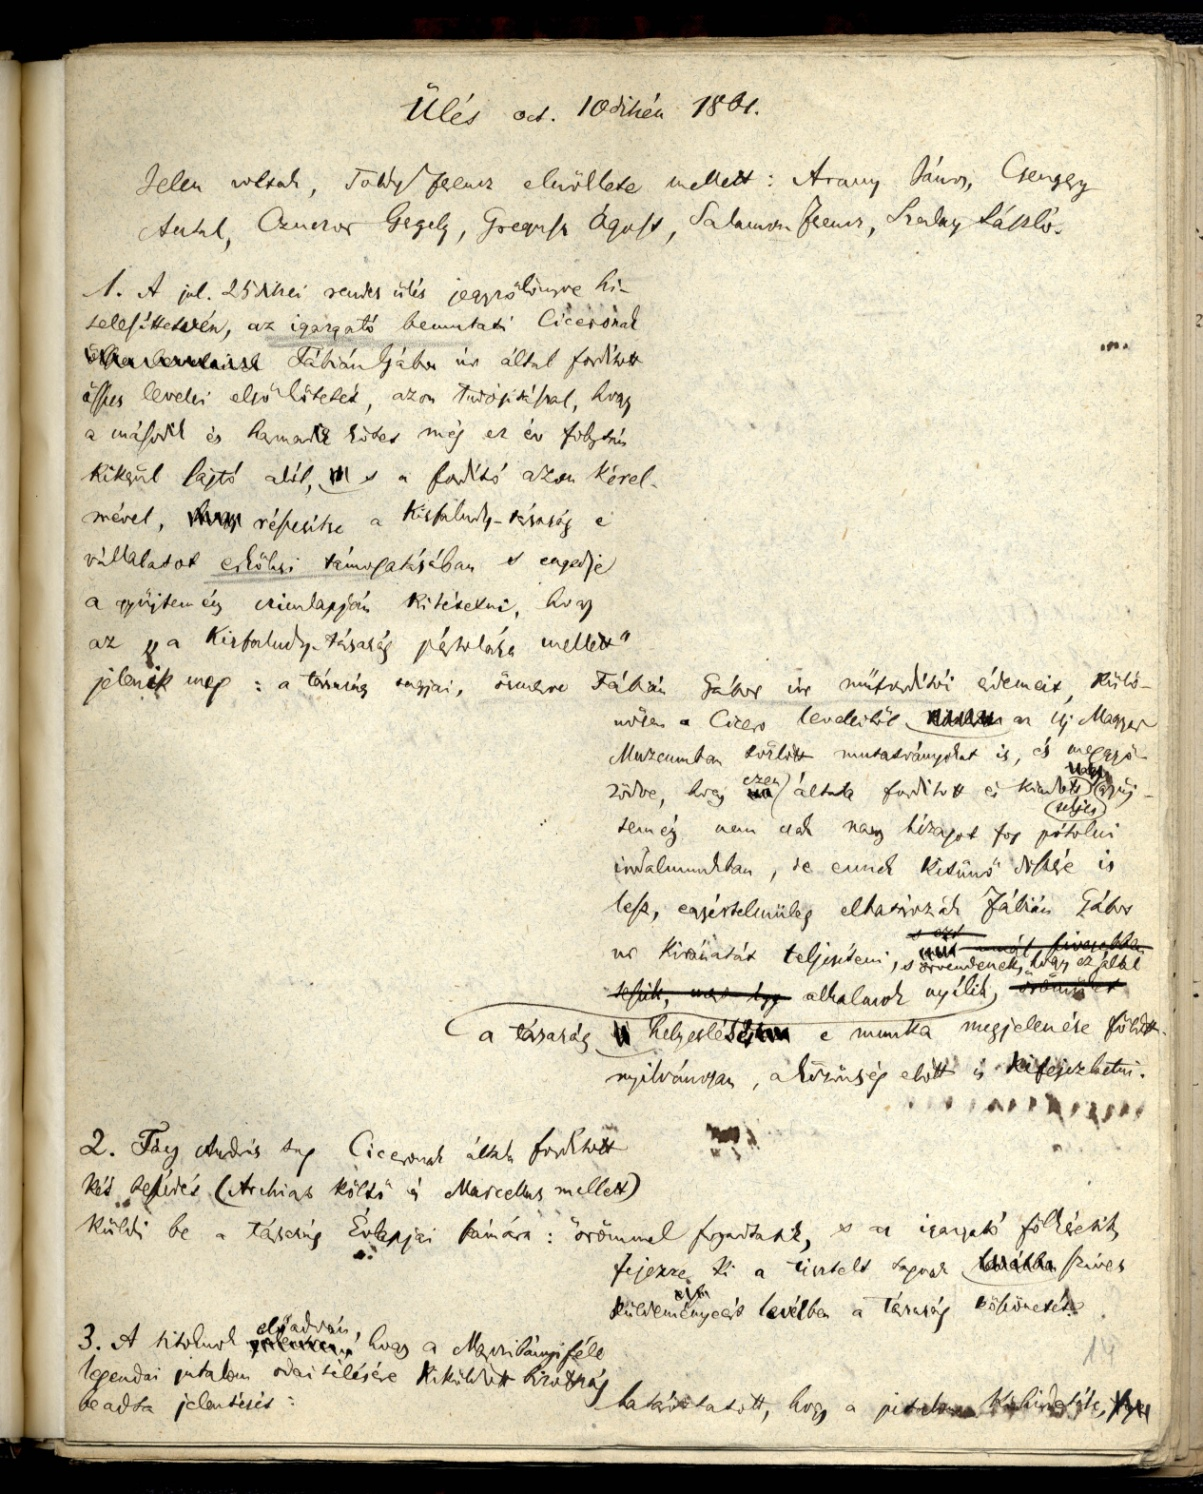 Ülés oct. 10dikén 1861.
Jelen voltak, Toldy Ferencz elnöklete mellett: Arany János, Csengery
Antal, Czuczor Gergely, Greguss Ágost, Salamon Ferencz, Szalay László.
1. A jul. 25diki rendes ülés jegyzőkönyve hi-
telesíttetvén, az igazgató bemutatá Cicerónak
Fábián Gábor úr által fordított
összes levelei első kötetét, azon tudósítással, hogy
a második és harmadik kötet még ez év folytán
kikerül sajtó alól, s a fordító azon kérel-
mével, részesítse a Kisfaludy-társaság e
vállalatot erkölcsi támogatásában s engedje
a gyűjtemény czimlapján kitétetni, hogy
az „a Kisfaludy-társaság pártolása mellett"
jelenik meg: a társaság tagjai, ösmerve Fábián Gábor úr műfordítói érdemeit, külö-
nösen a Cicero leveleiből az Uj Magyar
Muzeumban közlött mutatványokat is, és meggyő-
ződve, hogy ezen általa fordított és kiadott teljes gyűj-
temény nem csak nagy hézagot fog pótolni
irodalmunkban, de ennek kitünő dísze is
lesz, egyértelműleg elhatározák Fábián Gábor
úr kivánatát teljesíteni, s örvendenek, hogy ez által
alkalmok nyílik,
a társaság helyeslését e munka megjelenése fölött
nyilvánosan, a közönség előtt is kifejezhetni.
2. Fáy András tag Cicerónak általa fordított
két beszédét (Archias költő és Marcellus mellett)
küldi be a társaság Évlapjai számára: örömmel fogadtatik, s az igazgató fölkéretik,
fejezze ki a tisztelt tagnak szíves
küldeményeért levélben a társaság köszönetét.
3. A titoknok előadván, hogy a Marczibányi féle
legendai jutalom odaitélésére kiküldött bizottság
beadta jelentését: határoztatott, hogy a
14